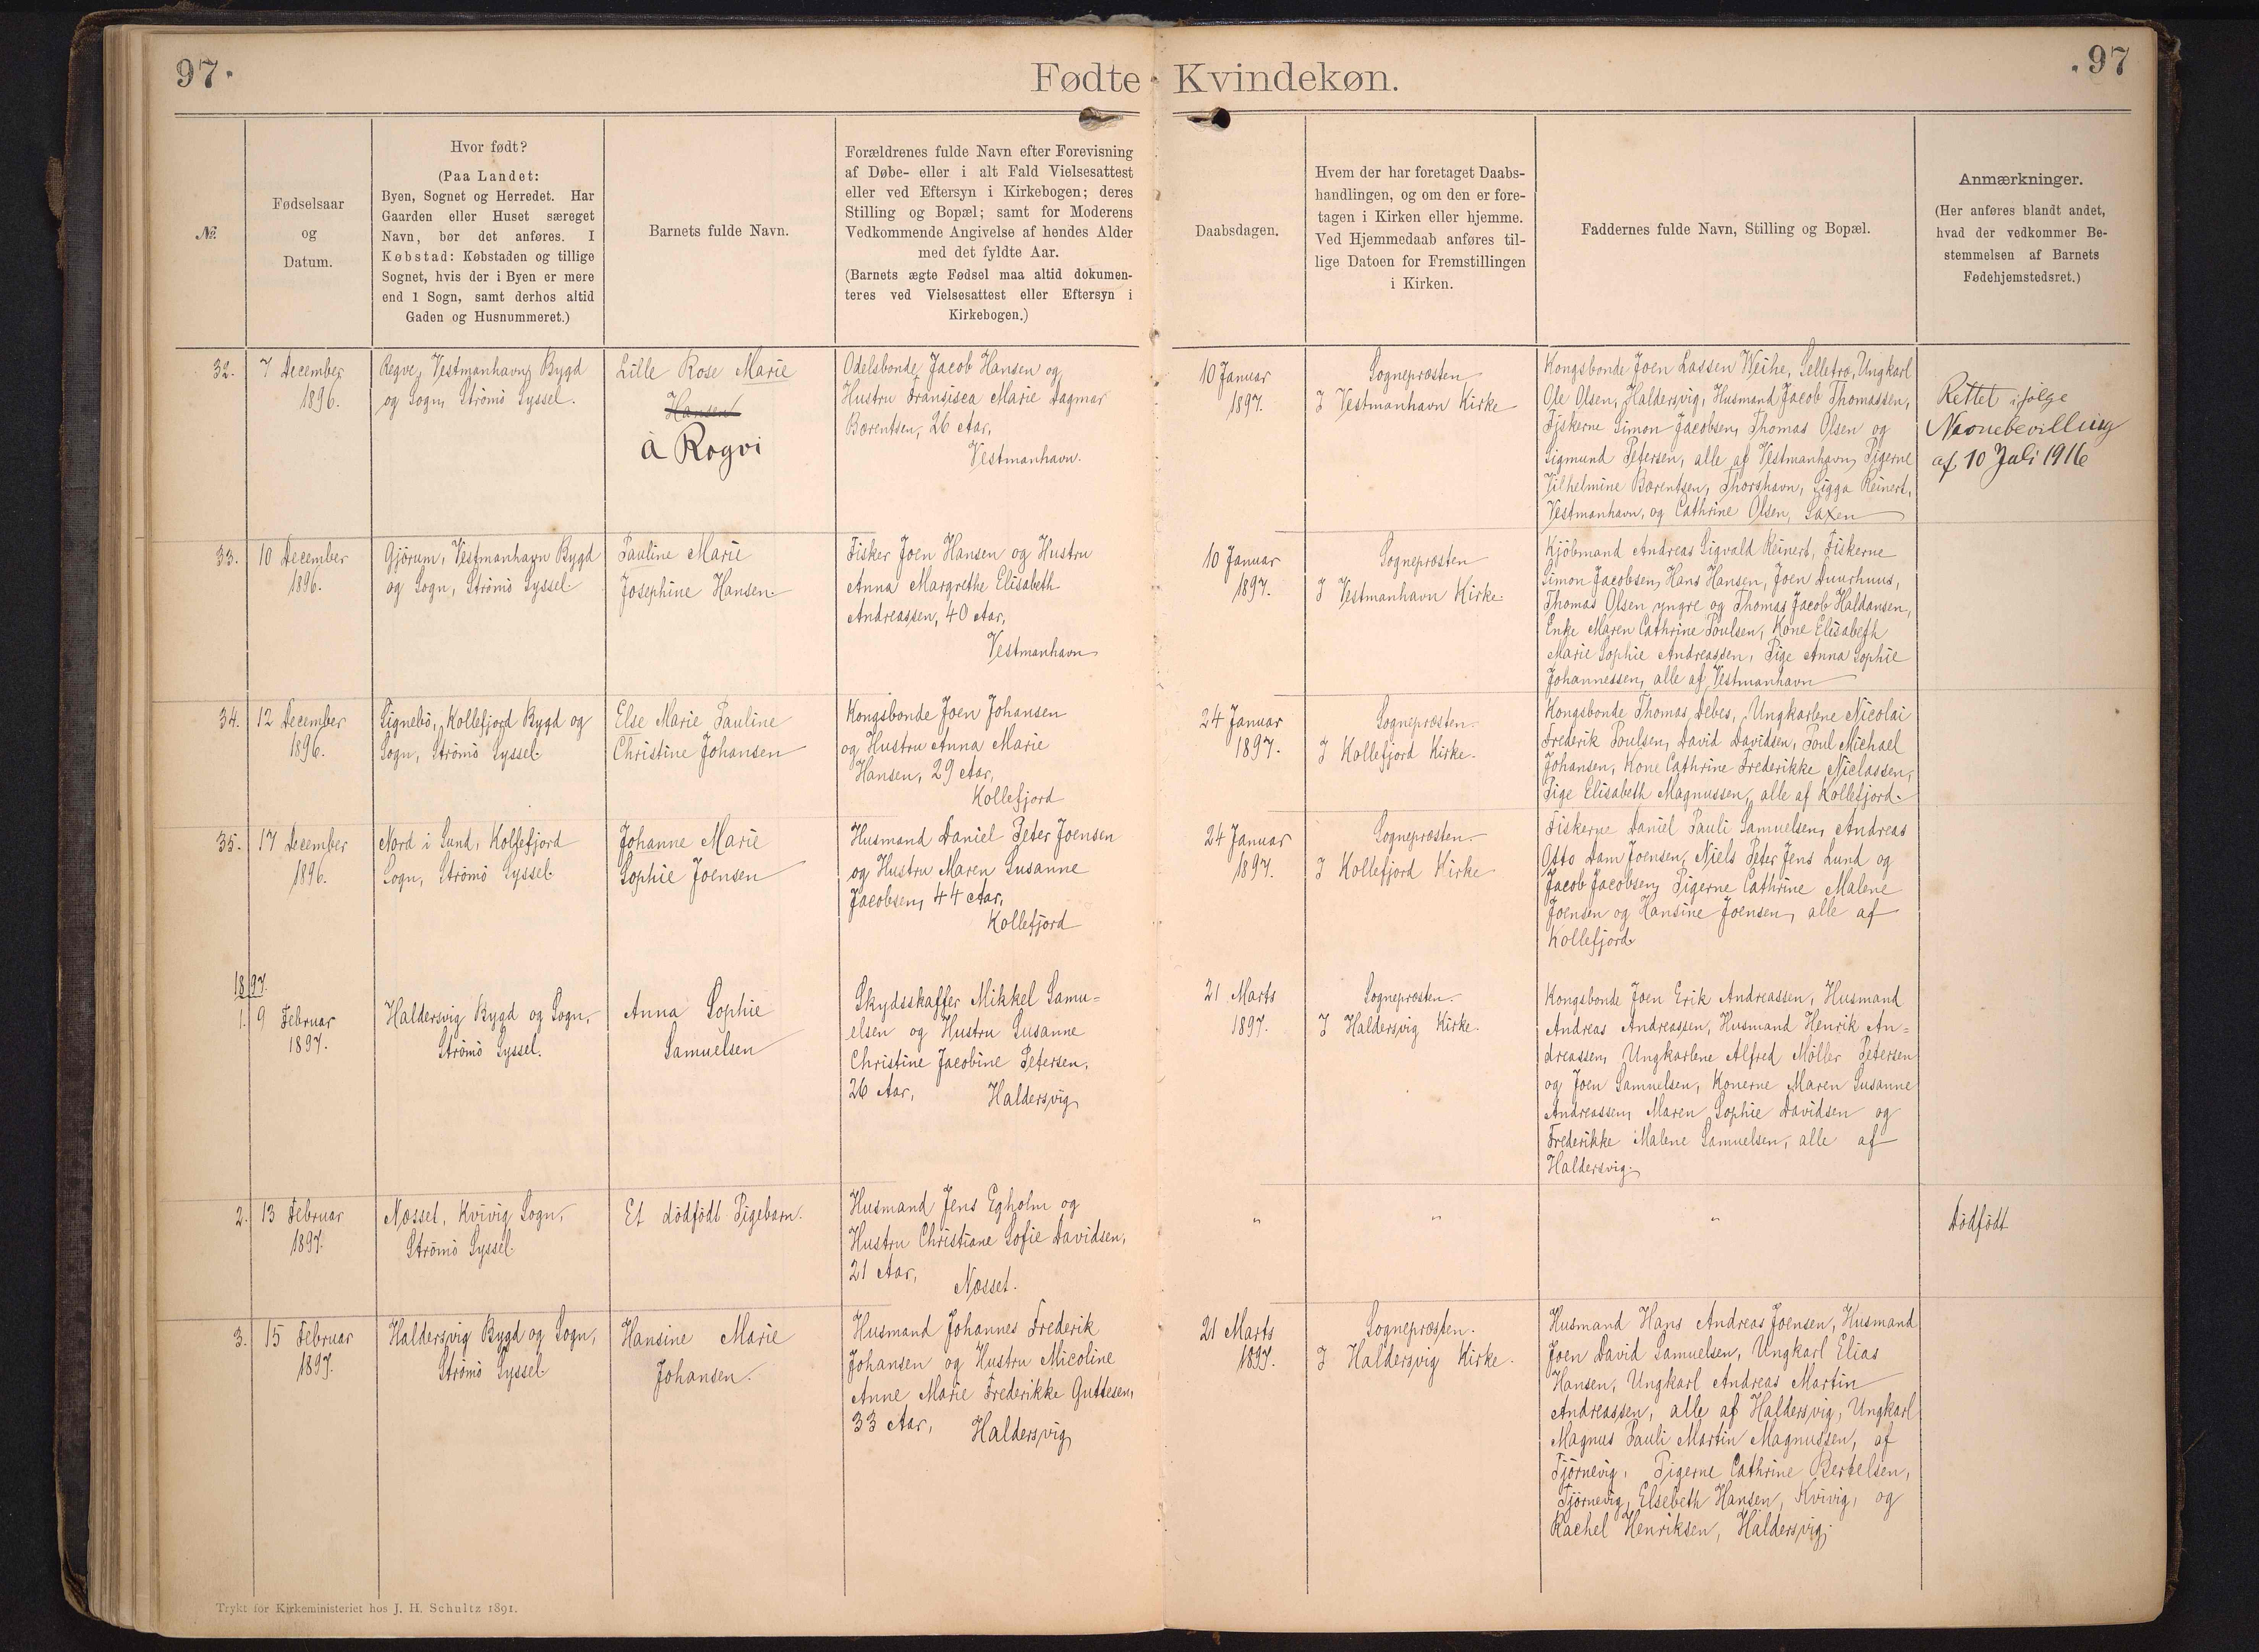 97.
Fødte Kvindekøn.
97
№
Fødselsaar
og
Datum.
Hvor født?
(Paa Landet:
Byen, Sognet og Herredet. Har
Gaarden eller Huset særeget
Navn, bør det anføres. I
Købstad: Købstaden og tillige
Sognet, hvis der i Byen er mere
end 1 Sogn, samt derhos altid
Gaden og Husnummeret.)
Barnets fulde Navn.
Forældrenes fulde Navn efter Forevisning
af Døbe- eller i alt Fald Vielsesattest
eller ved Eftersyn i Kirkebogen; deres
Stilling og Bopæl; samt for Moderens
Vedkommende Angivelse af hendes Alder
med det fyldte Aar.
(Barnets ægte Fødsel maa altid dokumen-
teres ved Vielsesattest eller Eftersyn i
Kirkebogen.)
Daabsdagen.
Hvem der har foretaget Daabs-
handlingen, og om den er fore-
tagen i Kirken eller hjemme.
Ved Hjemmedaab anføres til-
lige Datoen for Fremstillingen
i Kirken.
Faddernes fulde Navn, Stilling og Bopæl.
Anmærkninger.
(Her anføres blandt andet,
hvad der vedkommer Be-
stemmelsen af Barnets
Fødehjemstedsret.)
32.
7 December
1896.
Regve, Vestmanhavns Bygd
og Sogn, Strömö Syssel.
Lille Rose Marie
Hansen
á Rogvi
Odelsbonde Jacob Hansen og
Hustru Fransisca Marie Dagmar
Bærentsen, 26 Aar,
Vestmanhavn.
10 Januar
1897.
Sognepræsten
I Vestmanhavn Kirke
Kongsbonde Joen Lassen Weihe, Selletræ, Ungkarl
Ole Olsen, Haldersvig, Husmand Jacob Thomassen,
Fiskerne Simon Jacobsen, Thomas Olsen og
Sigmund Petersen, alle af Vestmanhavn, Pigerne
Vilhelmine Bærentsen, Thorshavn, Sigga Reinert,
Vestmanhavn, og Cathrine Olsen, Saxen
Rettet ifølge
Navnebevilling
af 10 Juli 1916
33.
10 December
1896.
Gjörum, Vestmanhavn Bygd
og Sogn, Strömö Syssel
Pauline Marie
Josephine Hansen.
Fisker Joen Hansen og Hustru
Anna Margrethe Elisabeth
Andreassen, 40 Aar,
Vestmanhavn
10 Januar
1897.
Sognepræsten
I Vestmanhavn Kirke.
Kjöbmand Andreas Sigvald Reinert, Fiskerne
Simon Jacobsen, Hans Hansen, Joen Duurhuus,
Thomas Olsen yngre og Thomas Jacob Haldansen,
Enke Maren Cathrine Poulsen, Kone Elisabeth
Marie Sophie Andreassen, Pige Anna Sophie
Johannessen, alle af Vestmanhavn
34.
12 December
1896.
Signebö, Kollefjord Bygd og
Sogn, Strömö Syssel.
Else Marie Pauline
Christine Johansen
Kongsbonde Joen Johansen
og Hustru Anna Marie
Hansen, 29 Aar,
Kollefjord
24 Januar
1897.
Sognepræsten.
I Kollefjord Kirke.
Kongsbonde Thomas Debes, Ungkarlene Nicolai
Frederik Poulsen, David Davidsen, Poul Michael
Johansen, Kone Cathrine Frederikke Niclassen,
Pige Elisabeth Magnussen, alle af Kollefjord.
35.
17 December
1896.
Nord i Sund, Kollefjord
Sogn, Strömö Syssel.
Johanne Marie
Sophie Joensen
Husmand Daniel Peter Joensen
og Hustru Maren Susanne
Jacobsen, 44 Aar,
Kollefjord
24 Januar
1897.
Sognepræsten.
I Kollefjord Kirke
Fiskerne Daniel Pauli Samuelsen, Andreas
Otto Dam Joensen, Niels Peter Jens Lund og
Jacob Jacobsen, Pigerne Cathrine Malene
Joensen og Hansine Joensen, alle af
Kollefjord
1897.
1.
9 Februar
1897.
Haldersvig Bygd og Sogn,
Strömö Syssel.
Anna Sophie
Samuelsen
Skydsskaffer Mikkel Samu=
elsen og Hustru Susanne
Christine Jacobine Petersen,
26 Aar,
Haldersvig
21 Marts
1897.
Sognepræsten.
I Haldersvig Kirke.
Kongsbonde Joen Erik Andreassen, Husmand
Andreas Andreassen, Husmand Henrik An=
dreassen, Ungkarlene Alfred Möller Petersen
og Joen Samuelsen, Konerne Maren Susanne
Andreassen, Maren Sophie Davidsen og
Frederikke Malene Samuelsen, alle af
Haldersvig.
2.
13 Februar
1897.
Næsset, Kvivig Sogn,
Strömö Syssel.
Et dödfödt Pigebarn.
Husmand Jens Egholm og
Hustru Christiane Sofie Davidsen,
21 Aar,
Næsset.
"
"
"
Dödfödt
3.
15 Februar
1897.
Haldersvig Bygd og Sogn,
Strömö Syssel
Hansine Marie
Johansen.
Husmand Johannes Frederik
Johansen og Hustru Nicoline
Anne Marie Frederikke Guttesen,
33 Aar,
Haldersvig
21 Marts
1897.
Sognepræsten.
I Haldersvig Kirke.
Husmand Hans Andreas Joensen, Husmand
Joen David Samuelsen, Ungkarl Elias
Hansen, Ungkarl Andreas Martin
Andreassen, alle af Haldersvig, Ungkarl
Magnus Pauli Martin Magnussen, af
Tjörnevig, Pigerne Cathrine Bertelsen,
Tjörnevig, Elsebeth Hansen, Kvivig, og
Rachel Henriksen, Haldersvig.
Trykt for Kirkeministeriet hos J. H. Schultz 1891.